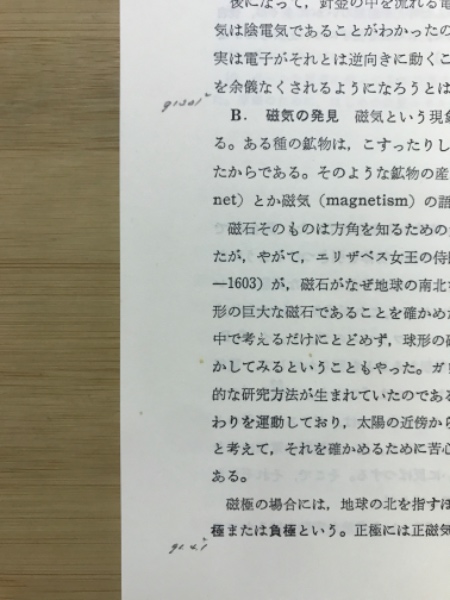 後になって，針金の中を流れる電
気は陰電気であることがわかったの
実は電子がそれとは逆向きに動くこ
を余儀なくされるようになろうとは
B． 磁気の発見 磁気という現象
る。ある種の鉱物は，こすったりし
たからである。そのような鉱物の産
net）とか磁気（magnetism）の語
磁石そのものは方角を知るための
たが，やがて，エリザベス女王の侍医
―1603）が，磁石がなぜ地球の南北を
形の巨大な磁石であることを確かめた
中で考えるだけにとどめず，球形の磁
かしてみるということもやった。ガ
的な研究方法が生まれていたのである
わりを運動しており，太陽の近傍から
と考えて，それを確かめるために苦心
ある。
磁極の場合には，地球の北を指すほ
極または負極という。正極には正磁気